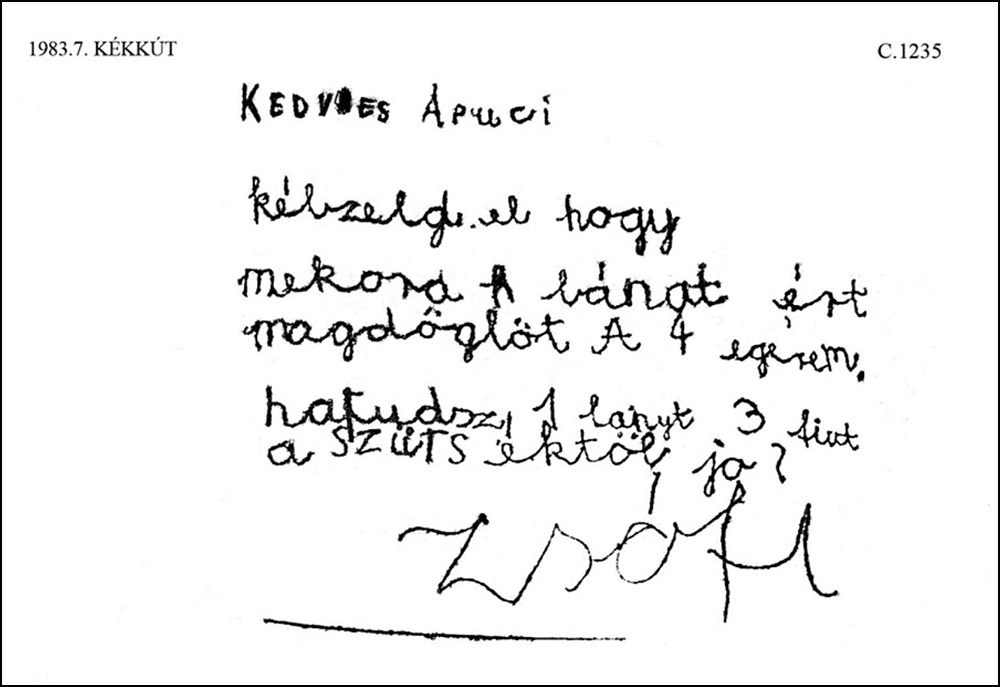 1983.7. KÉKKÚT
C.1235
KEDVES Apuci
kébzeld el hogy
mekora A bánat ért
magdöglöt A 4 egerem.
hatudsz, 1 lanyt 3 fiut
a SZŰTS éktől, ja?
Zsófi